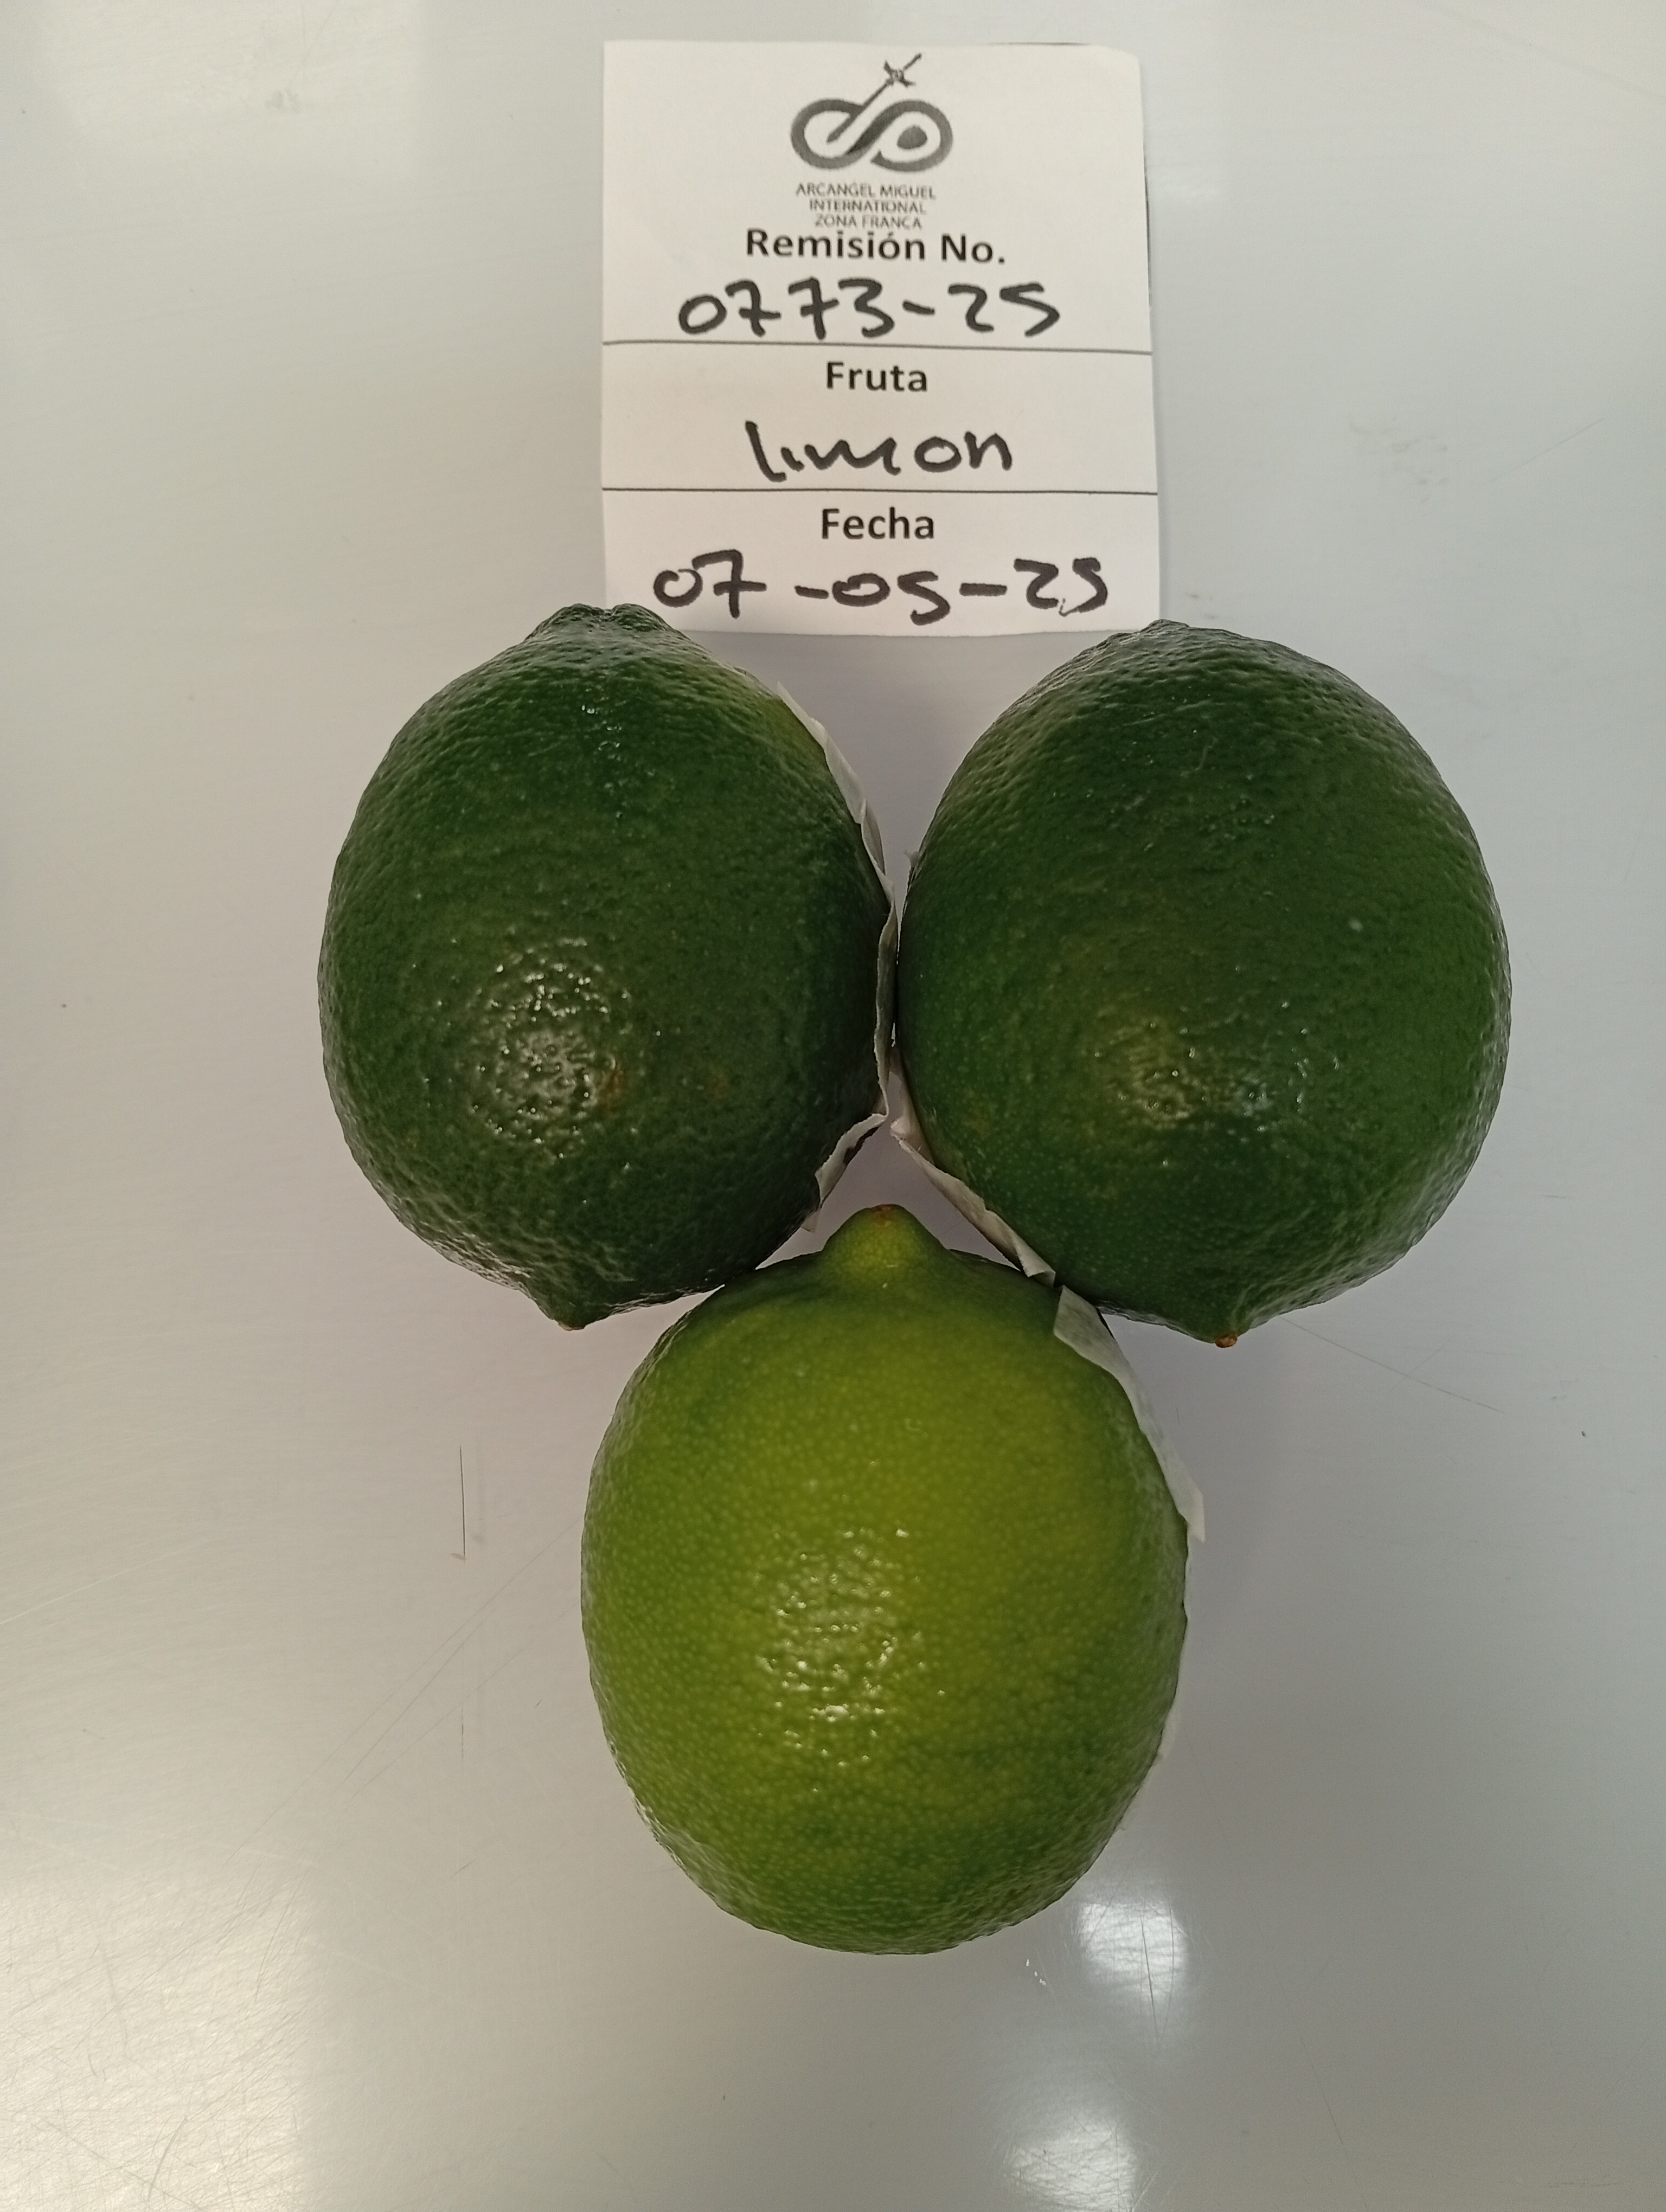 ARCANGEL MIGUEL
INTERNATIONAL
ZONA FRANCA
Remisión No.
0773-25
Fruta
limon
Fecha
07-05-25